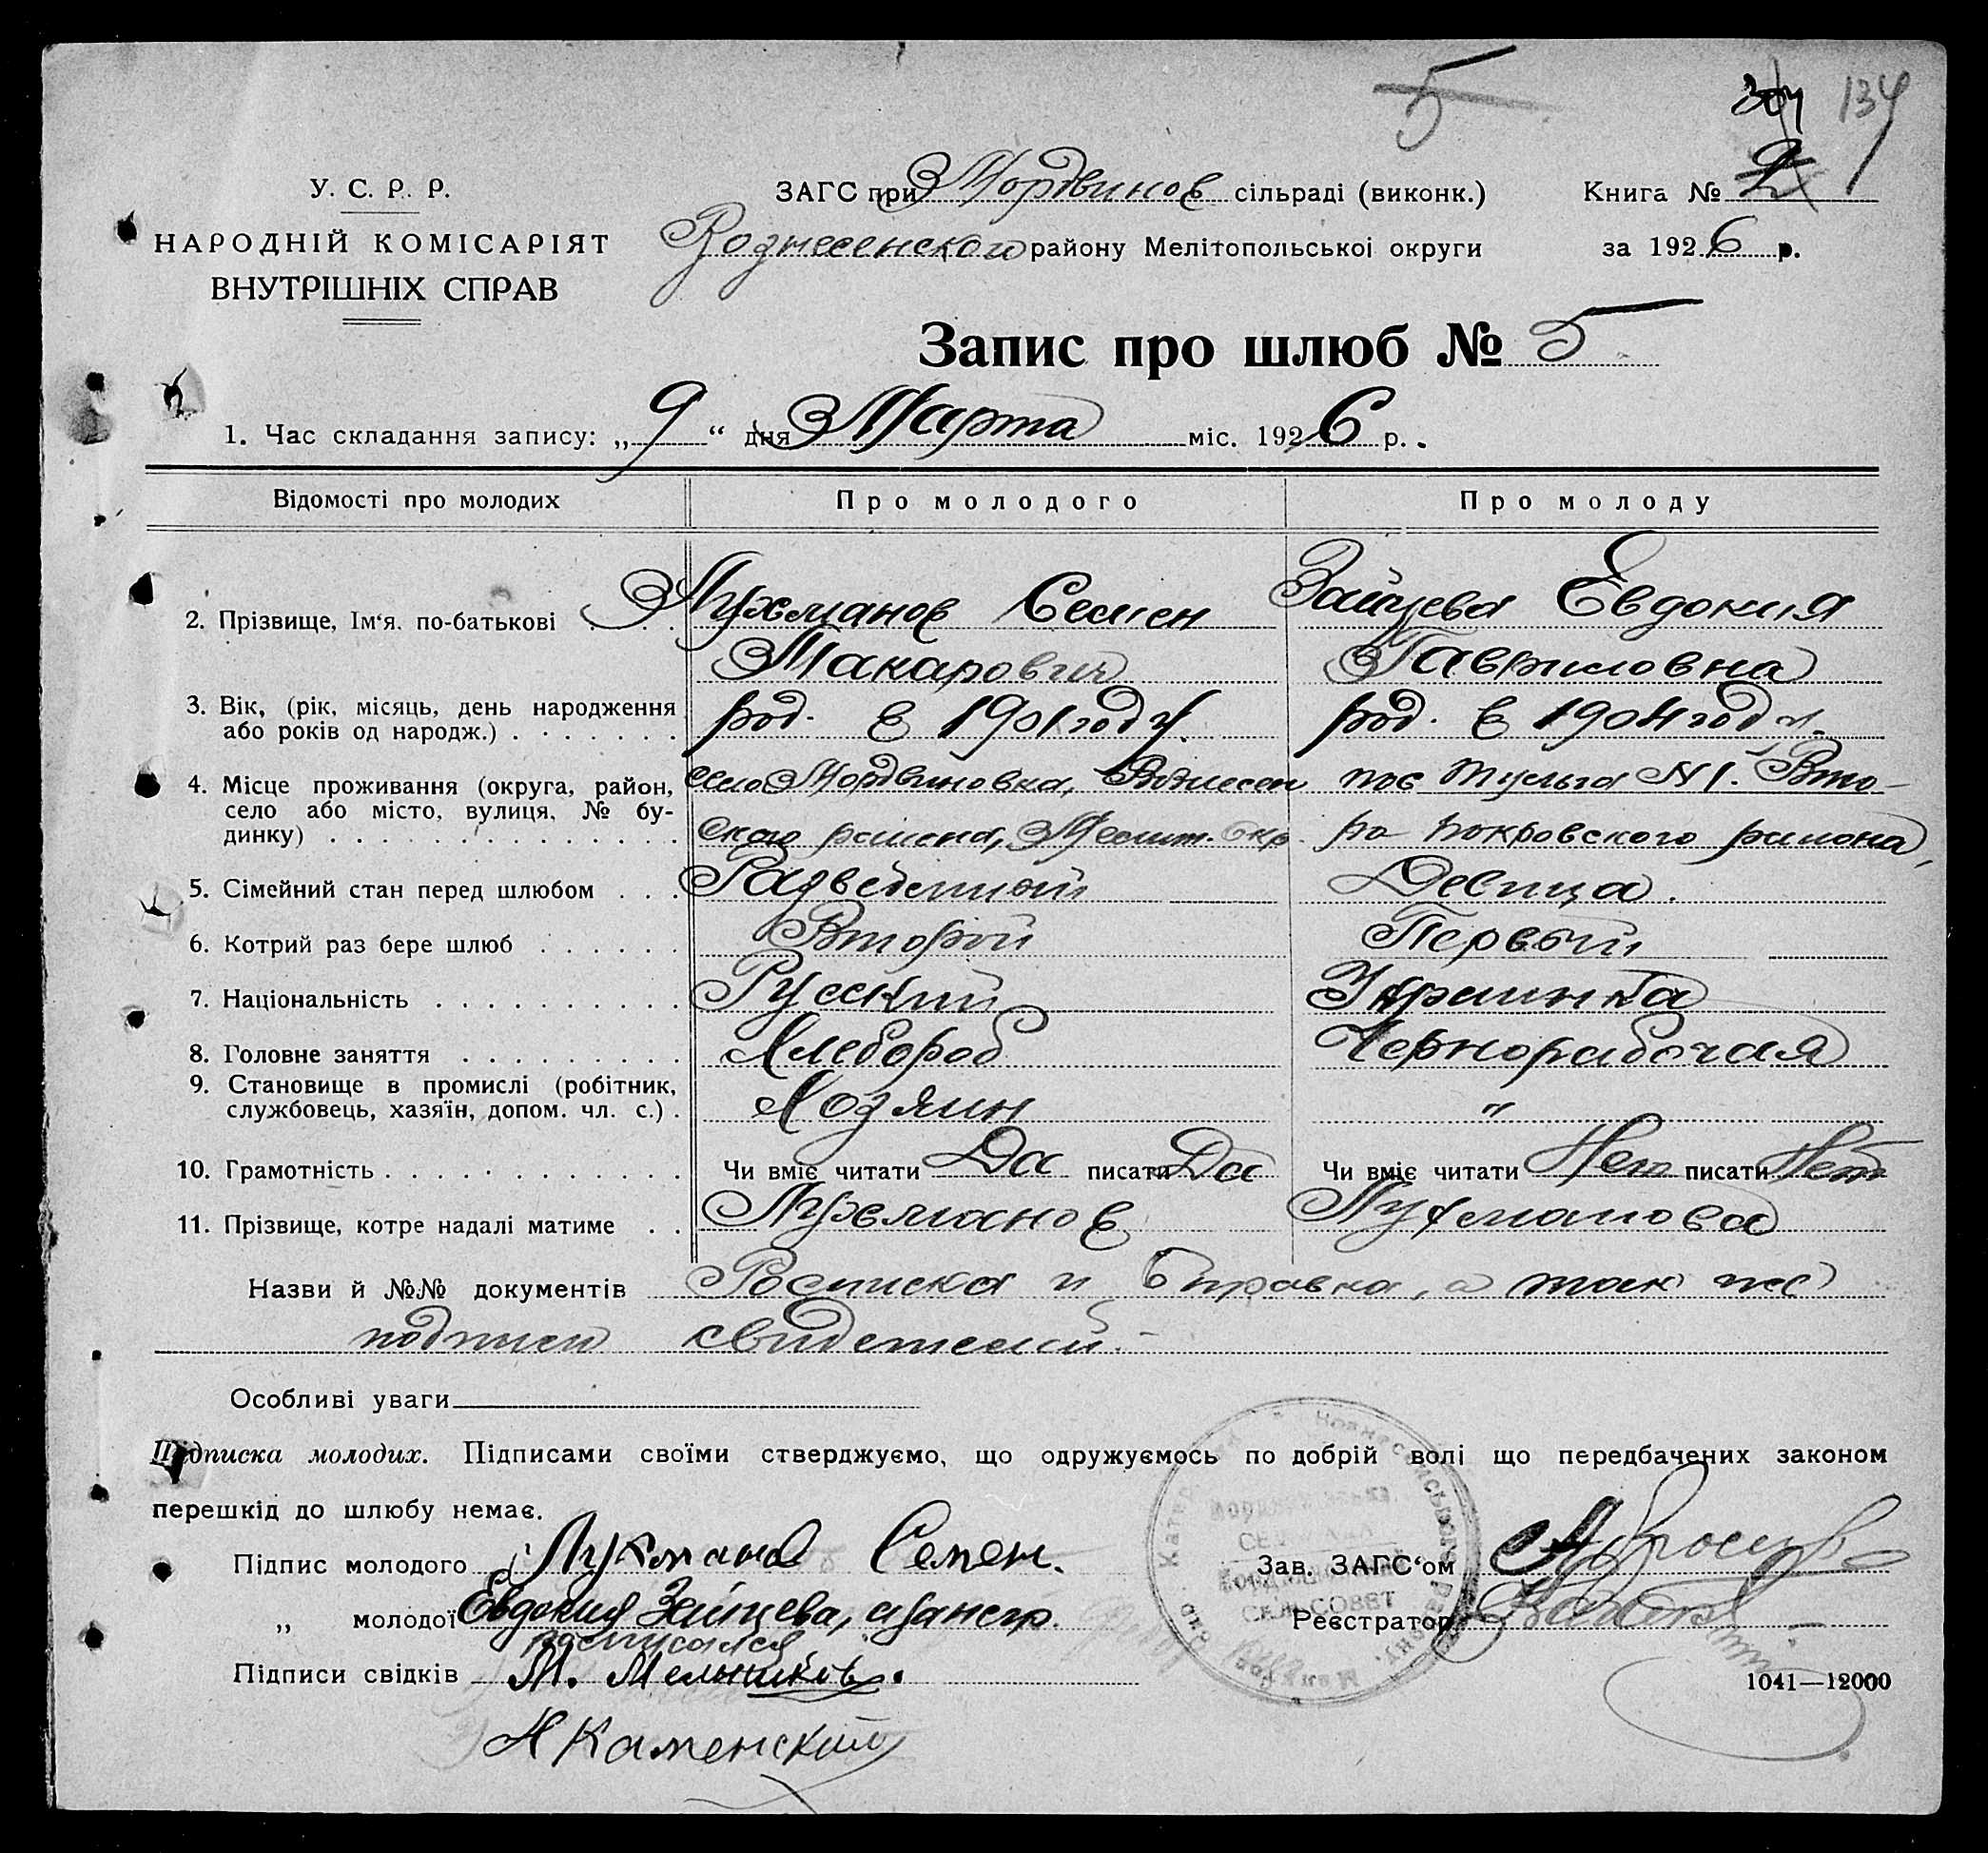 5
134
У. С. Р. Р.
НАРОДНІЙ КОМІСАРІЯТ
ВНУТРІШНІХ СПРАВ
ЗАГС при Мордвинов сільраді (виконк.)
Вознесенского району Мелітопольської округи
Книга №
за 1926 р.
Запис про шлюб № 5
1. Час складання запису: „ 9 “ дня Марта міс. 1926 р.
Відомості про молодих Про молодого Про молоду
2. Прізвище, Ім‘я. по-батькові Лухманов Семен Зайцева Евдокия
Макарович Гавриловна
3. Вік, (рік, місяць, день народження
або років од народж.) род. в 1901 году. род. в 1904 году.
4. Місце проживання (округа, район,
село або місто, вулиця, № бу-
динку)
село Мордвиновка, Вознесен
ского района, Мелит. Окр.
пос N 1. Вто-
ро покровского района,
5. Сімейний стан перед шлюбом Разведенный Девица.
6. Котрий раз бере шлюб Второй Первый
7. Національність Русский Украинка
8. Головне заняття Хлебороб Чернорабочая
9. Становище в промислі (робітник,
службовець, хазяїн, допом. чл. с.) Хозяин „
10. Грамотність Чи вміє читати Да писати Да Чи вміє читати Нет писати Нет
11. Прізвище, котре надалі матиме Лухманов Лухманова
Назви й №№ документів Росписка и Справка, а так же
подписи свидетелей.-
Особливі уваги
Підписка молодих. Підписами своїми стверджуємо, що одружуємось по добрій волі що передбачених законом
перешкід до шлюбу немає.
Підпис молодого Лухманов Семен.
„ молодої Евдокия Зайцева,
росписался
Підписи свідків М. Мельников.
Н Каменский
Зав. ЗАГС‘ом
Реєстратор
1041—12000